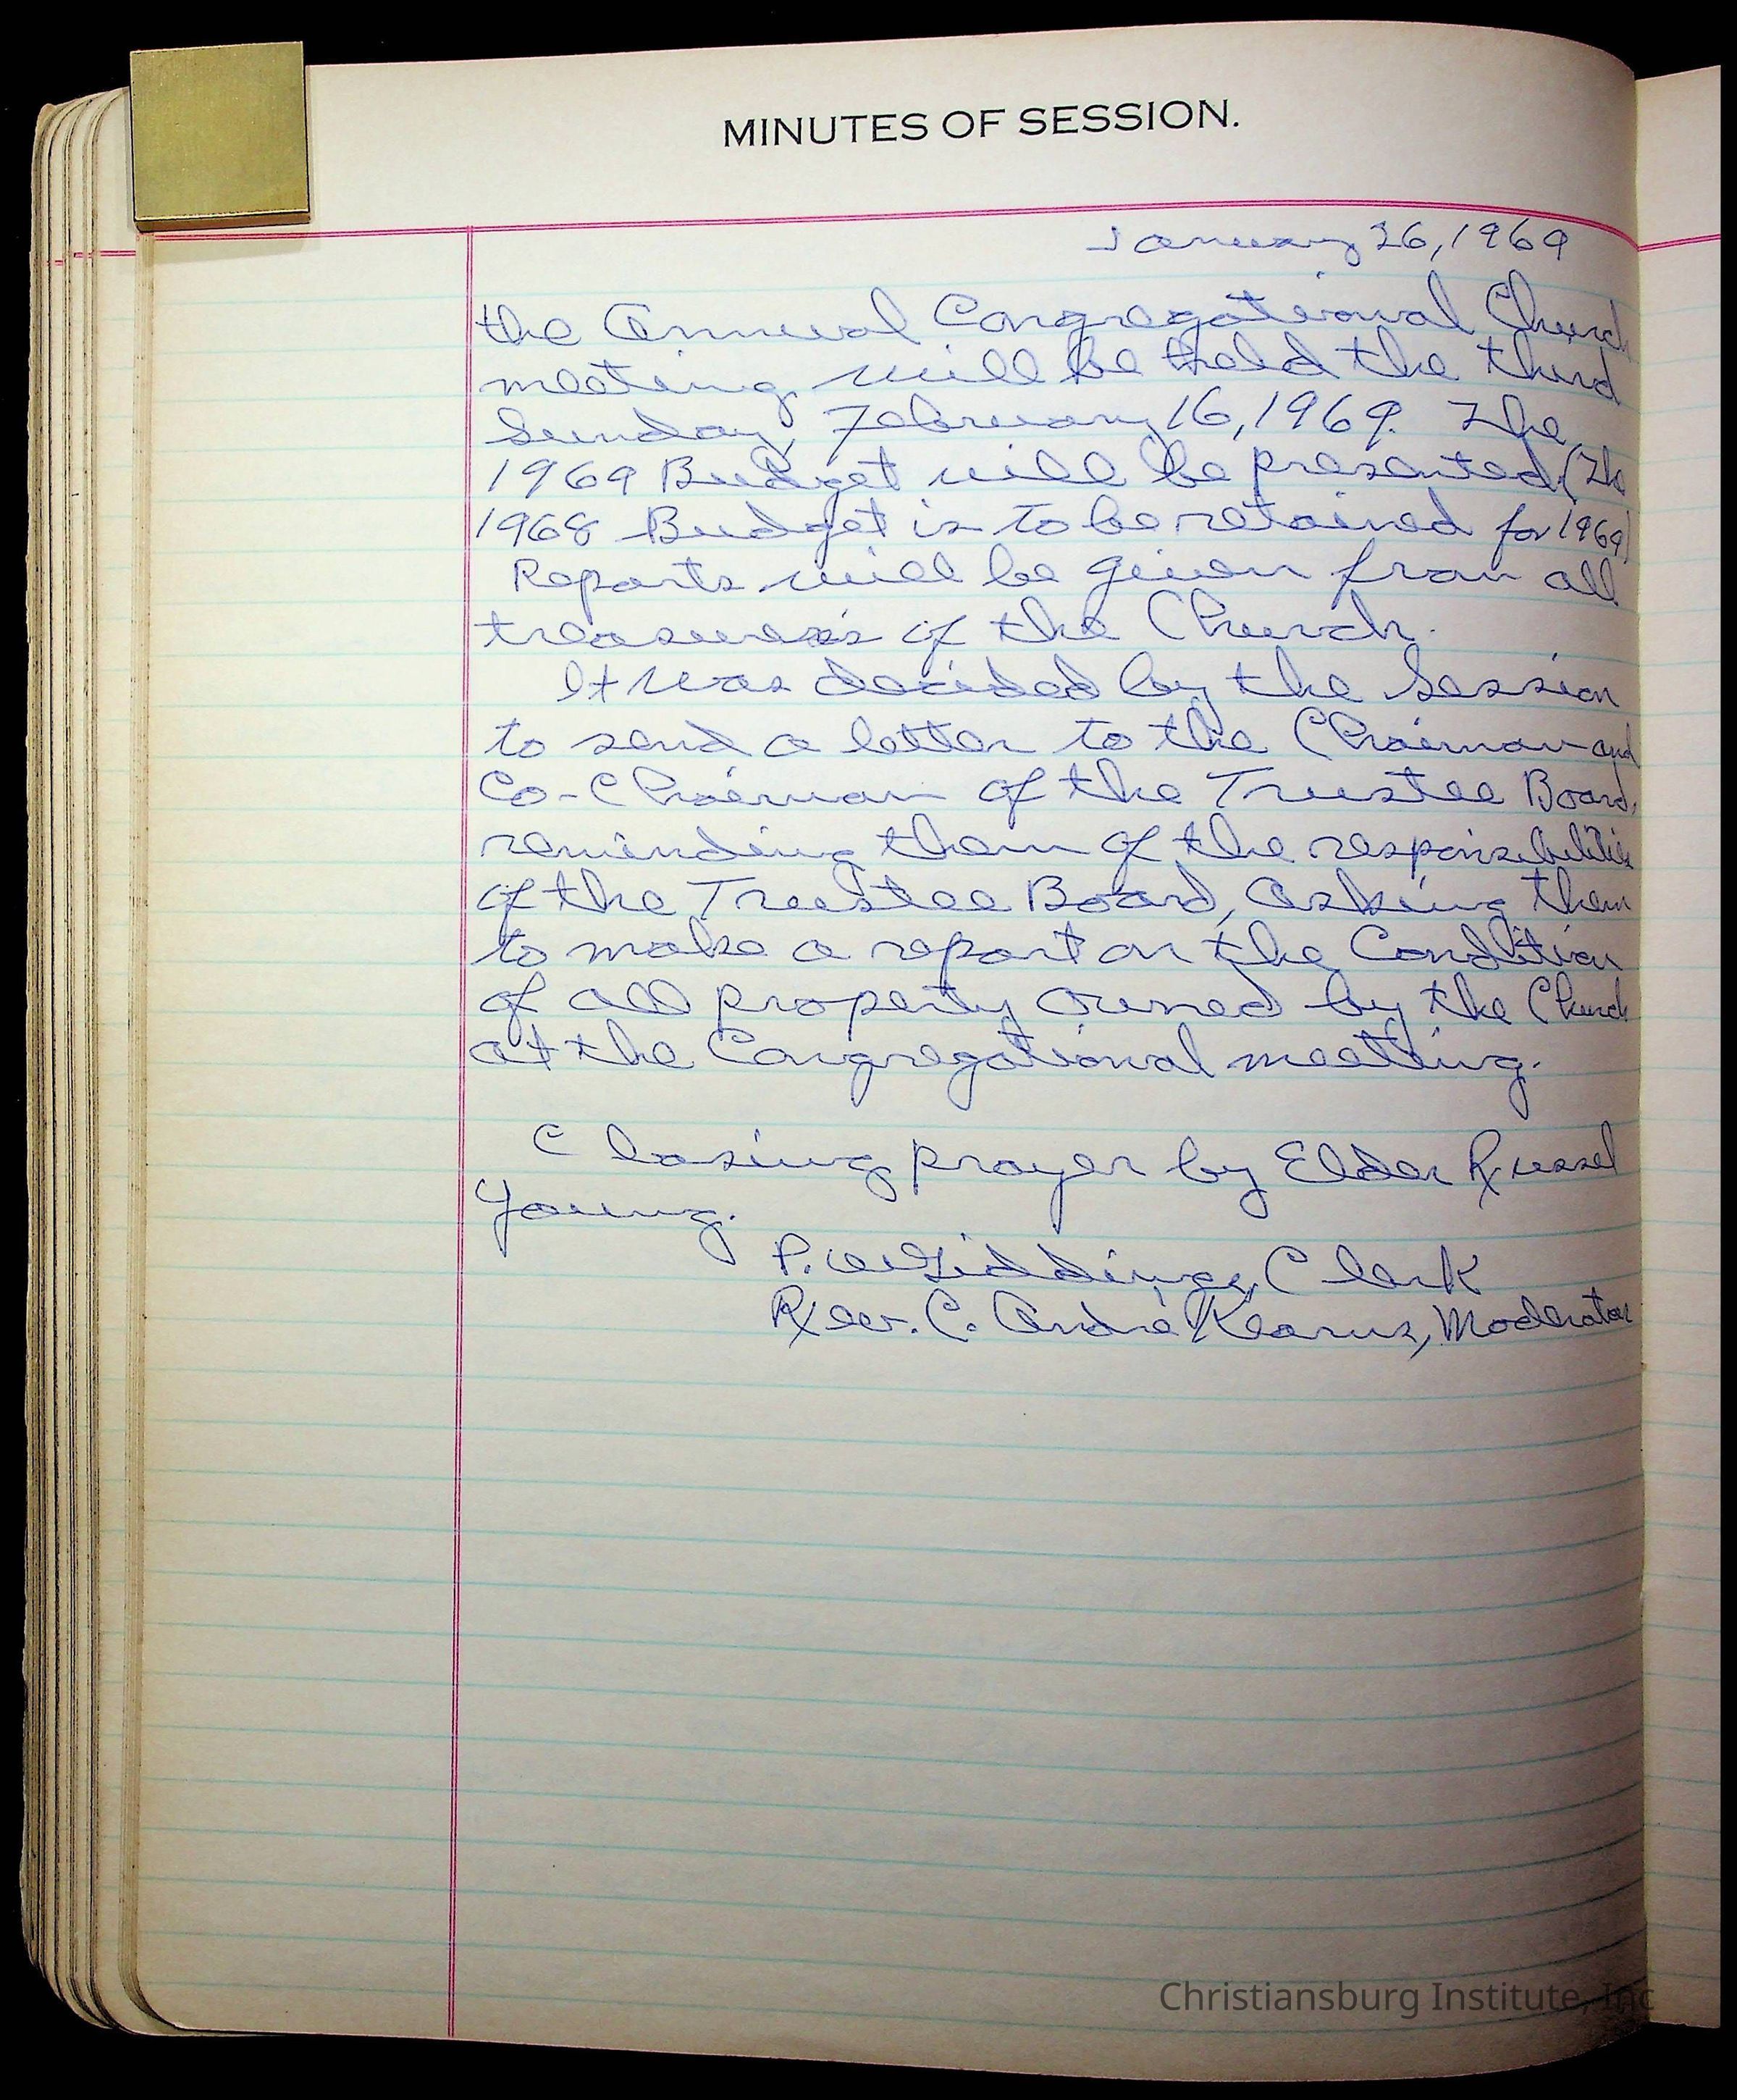 MINUTES OF SESSION.
January 26, 1969
the Annual Congregational Church
meeting will be held the third
Sunday, February 16, 1969. The
1969 Budget will be presented (The
1968 Budget is to be retained for 1969)
Reports will be given from all
treasurers of the Church.
It was decided by the Session
to send a letter to the Chairman and
Co-Chairman of the Trustee Board,
reminding them of the responsibilities
of the Trustee Board, asking them
to make a report on the Condition
of all property owned by the Church
at the Congregational meeting.
Closing prayer by Elder Russel
Young.
P. W. Giddings, Clerk
Rev. C. Andre Kearns, Moderator
Christiansburg Institute, Inc